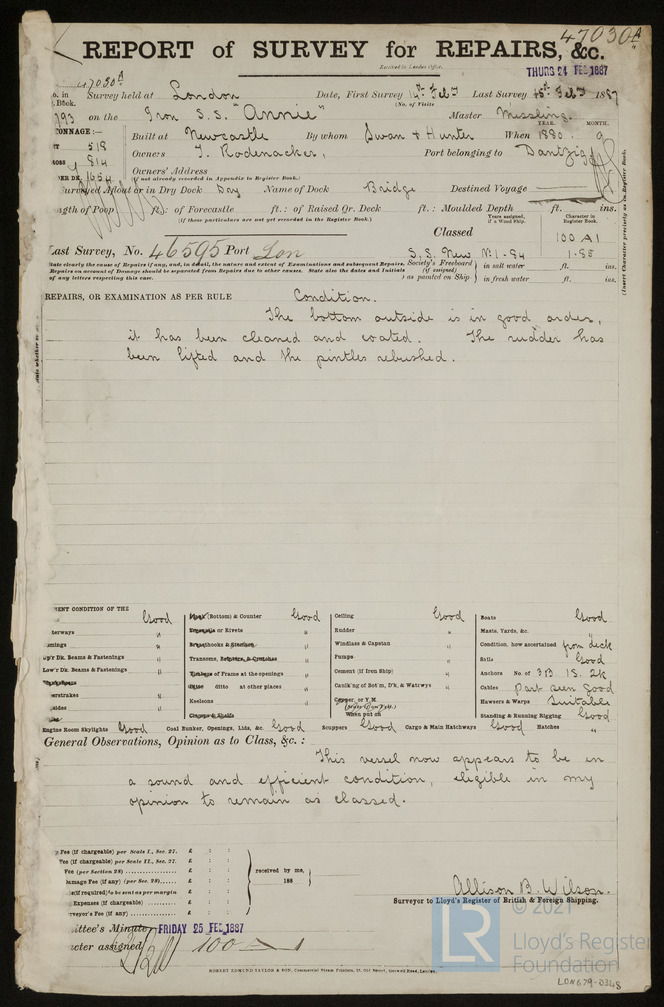 47030A
REPORT of SURVEY for REPAIRS, &c.
Received in London Office,
THURS 24 FEB 1887
47030A
Survey held at London Date, First Survey 14th Feb Last Survey 15th Feb 1887
Book. (No. of Visits
793 on the Iron S.S. "Annie" Master Wessling.
TONNAGE:— YEAR. MONTH.
518 Built at Newcastle By whom Swan & Hunter When 1880. 9
814 Owners T. Rodenacker, Port belonging to Dantzig
654 Owners' Address
(if not already recorded in Appendix to Register Book.)
Surveyed Afloat or in Dry Dock Dry Name of Dock Bridge Destined Voyage
Length of Poop ft.: of Forecastle ft.: of Raised Qr. Deck ft.: Moulded Depth ft. ins.
(if these particulars are not yet recorded in the Register Book.)
Years assigned, if a Wood Ship. Character in Register Book.
Classed 100 A1
Last Survey, No. 46595 Port Lon S.S. New. No.1-84 1-85
State clearly the cause of Repairs if any, and, in detail, the nature and extent of Examinations and subsequent Repairs. Society's Freeboard in salt water ft. ins.
Repairs on account of Damage should be separated from Repairs due to other causes. State also the dates and Initials (if assigned)
of any letters respecting this case. as painted on Ship in fresh water ft. ins.
(Insert Character precisely as in Register Book.)
REPAIRS, OR EXAMINATION AS PER RULE Condition.
The bottom outside is in good order,
it has been cleaned and coated. The rudder has
been lifted and the pintles rebushed.
CONDITION OF THE
Good (Bottom) & Counter Good Ceiling Good Boats Good
" or Rivets " Rudder " Masts, Yards, &c.
" Breasthooks & Stemson " Windlass & Capstan " Condition, how ascertained from deck
Up'r Dk. Beams & Fastenings " Transoms, " Pumps " Sails Good
Low'r Dk. Beams & Fastenings " of Frame at the openings " Cement (if Iron Ship) " Anchors No. of 3B. 1S. 2K
ditto at other places " Caulk'ng of Bot'm, D'k, & Watrwys " Cables part seen good
" Keelsons " Copper, or Y.M. Hawsers & Warps Suitable
When put on Standing & Running Rigging Good
Engine Room Skylights Good Coal Bunker, Openings, Lids, &c. Good Scuppers Good Cargo & Main Hatchways Good Hatches "
General Observations, Opinion as to Class, &c.:
This vessel now appears to be in
a sound and efficient condition, eligible in my
opinion to remain as classed.
Fee (if chargeable) per Scale I., Sec. 27. £ : :
Fee (if chargeable) per Scale II., Sec. 27. £ : :
Fee (per Section 28) £ : : received by me,
Damage Fee (if any) (per Sec. 28) £ : : 188
(if required) to be sent as per margin £ : :
Expenses (if chargeable) £ : :
Surveyor's Fee (if any) £ : :
Allison B. Wilson.
Surveyor to Lloyd's Register of British & Foreign Shipping.
Committee's Minute FRIDAY 25 FEB 1887
Character assigned 100 A 1
© 2021
LR
Lloyd's Register
Foundation
ROBERT EDMUND TAYLOR & SON, Commercial Steam Printers, 19, Old Street, Goswell Road, London.
LON679-0348